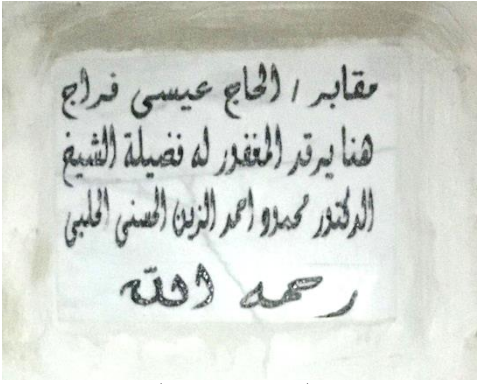 مقابر / الحاج عيسى فراج
هنا يرقد المغفور له فضيلة الشيخ
الدكتور محمود احمد الزين الحسنى الحلبى
رحمه الله